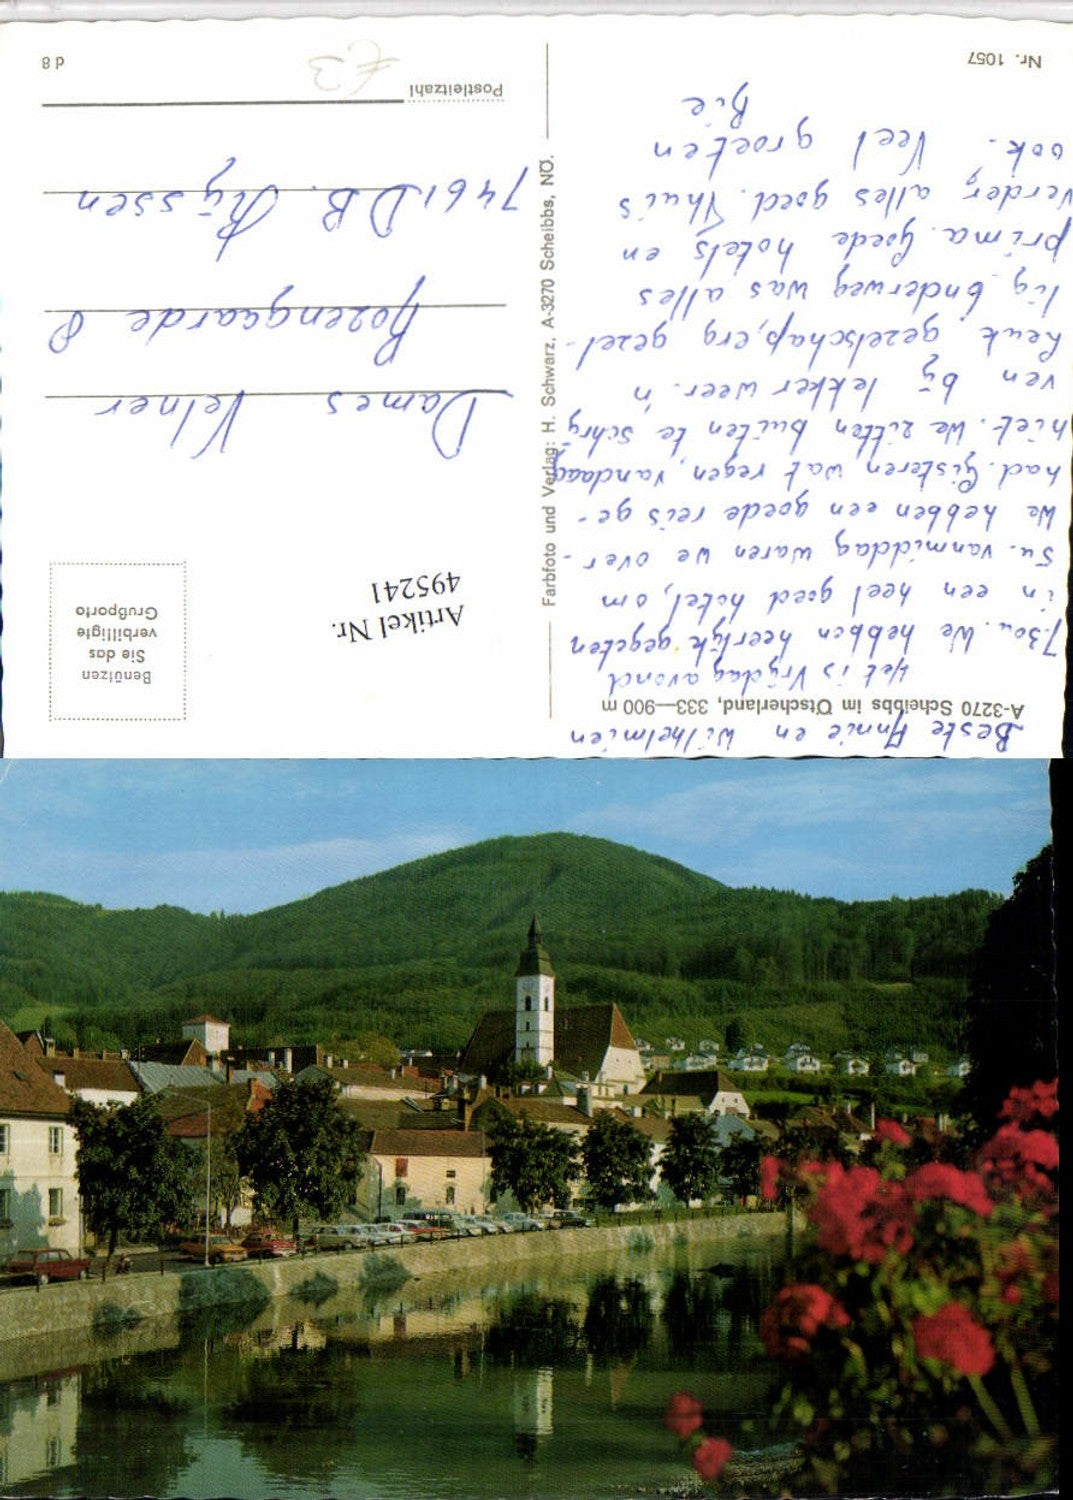 Beste Annie en Wilhelmien
A-3270 Scheibbs im Ötscherland, 333—900 m
Het is Vrijdag avond
7.30u. We hebben heerlijk gegeten
in een heel goed hotel, om
5u. vanmiddag waren we over-
We hebben een goede reis ge-
had. Gisteren wat regen, vandaag
niet. We zitten buiten te schrij
ven bij lekker weer. 'n
Leuk gezelschap, erg gezel-
lig. Onderweg was alles
prima. Goede hotels en
verder alles goed. Thuis
ook. Veel groeten
Bie
Nr. 1057
Farbfoto und Verlag: H. Schwarz, A-3270 Scheibbs, NÖ.
Benützen
Sie das
verbilligte
Grußporto
Artikel Nr.
495241
Dames Velner
Rozengaarde 8
7461 D B. Rijssen
Postleitzahl
£3
d 8